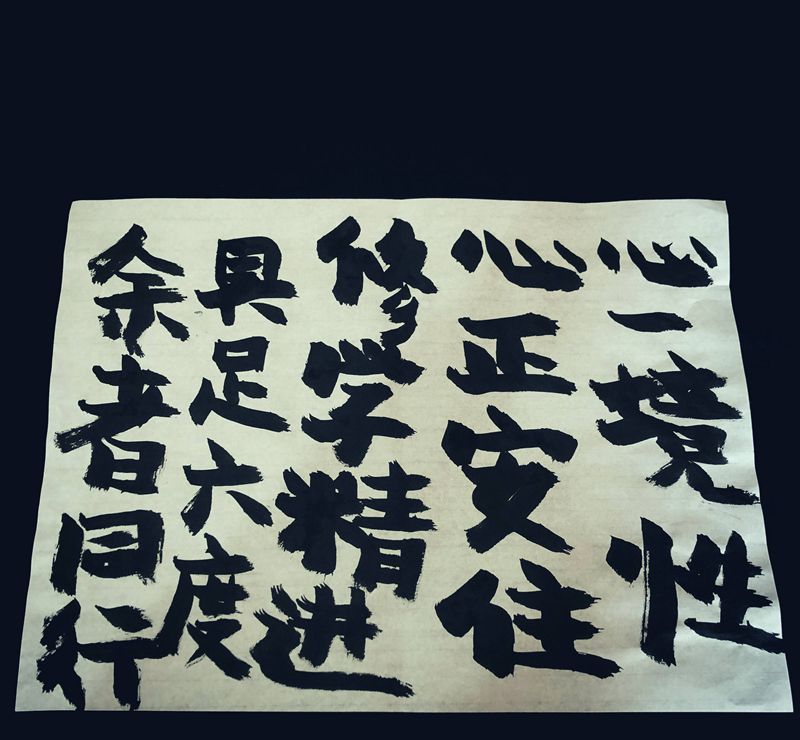 心一境性
心正安住
修学精进
具足六度
余者同行